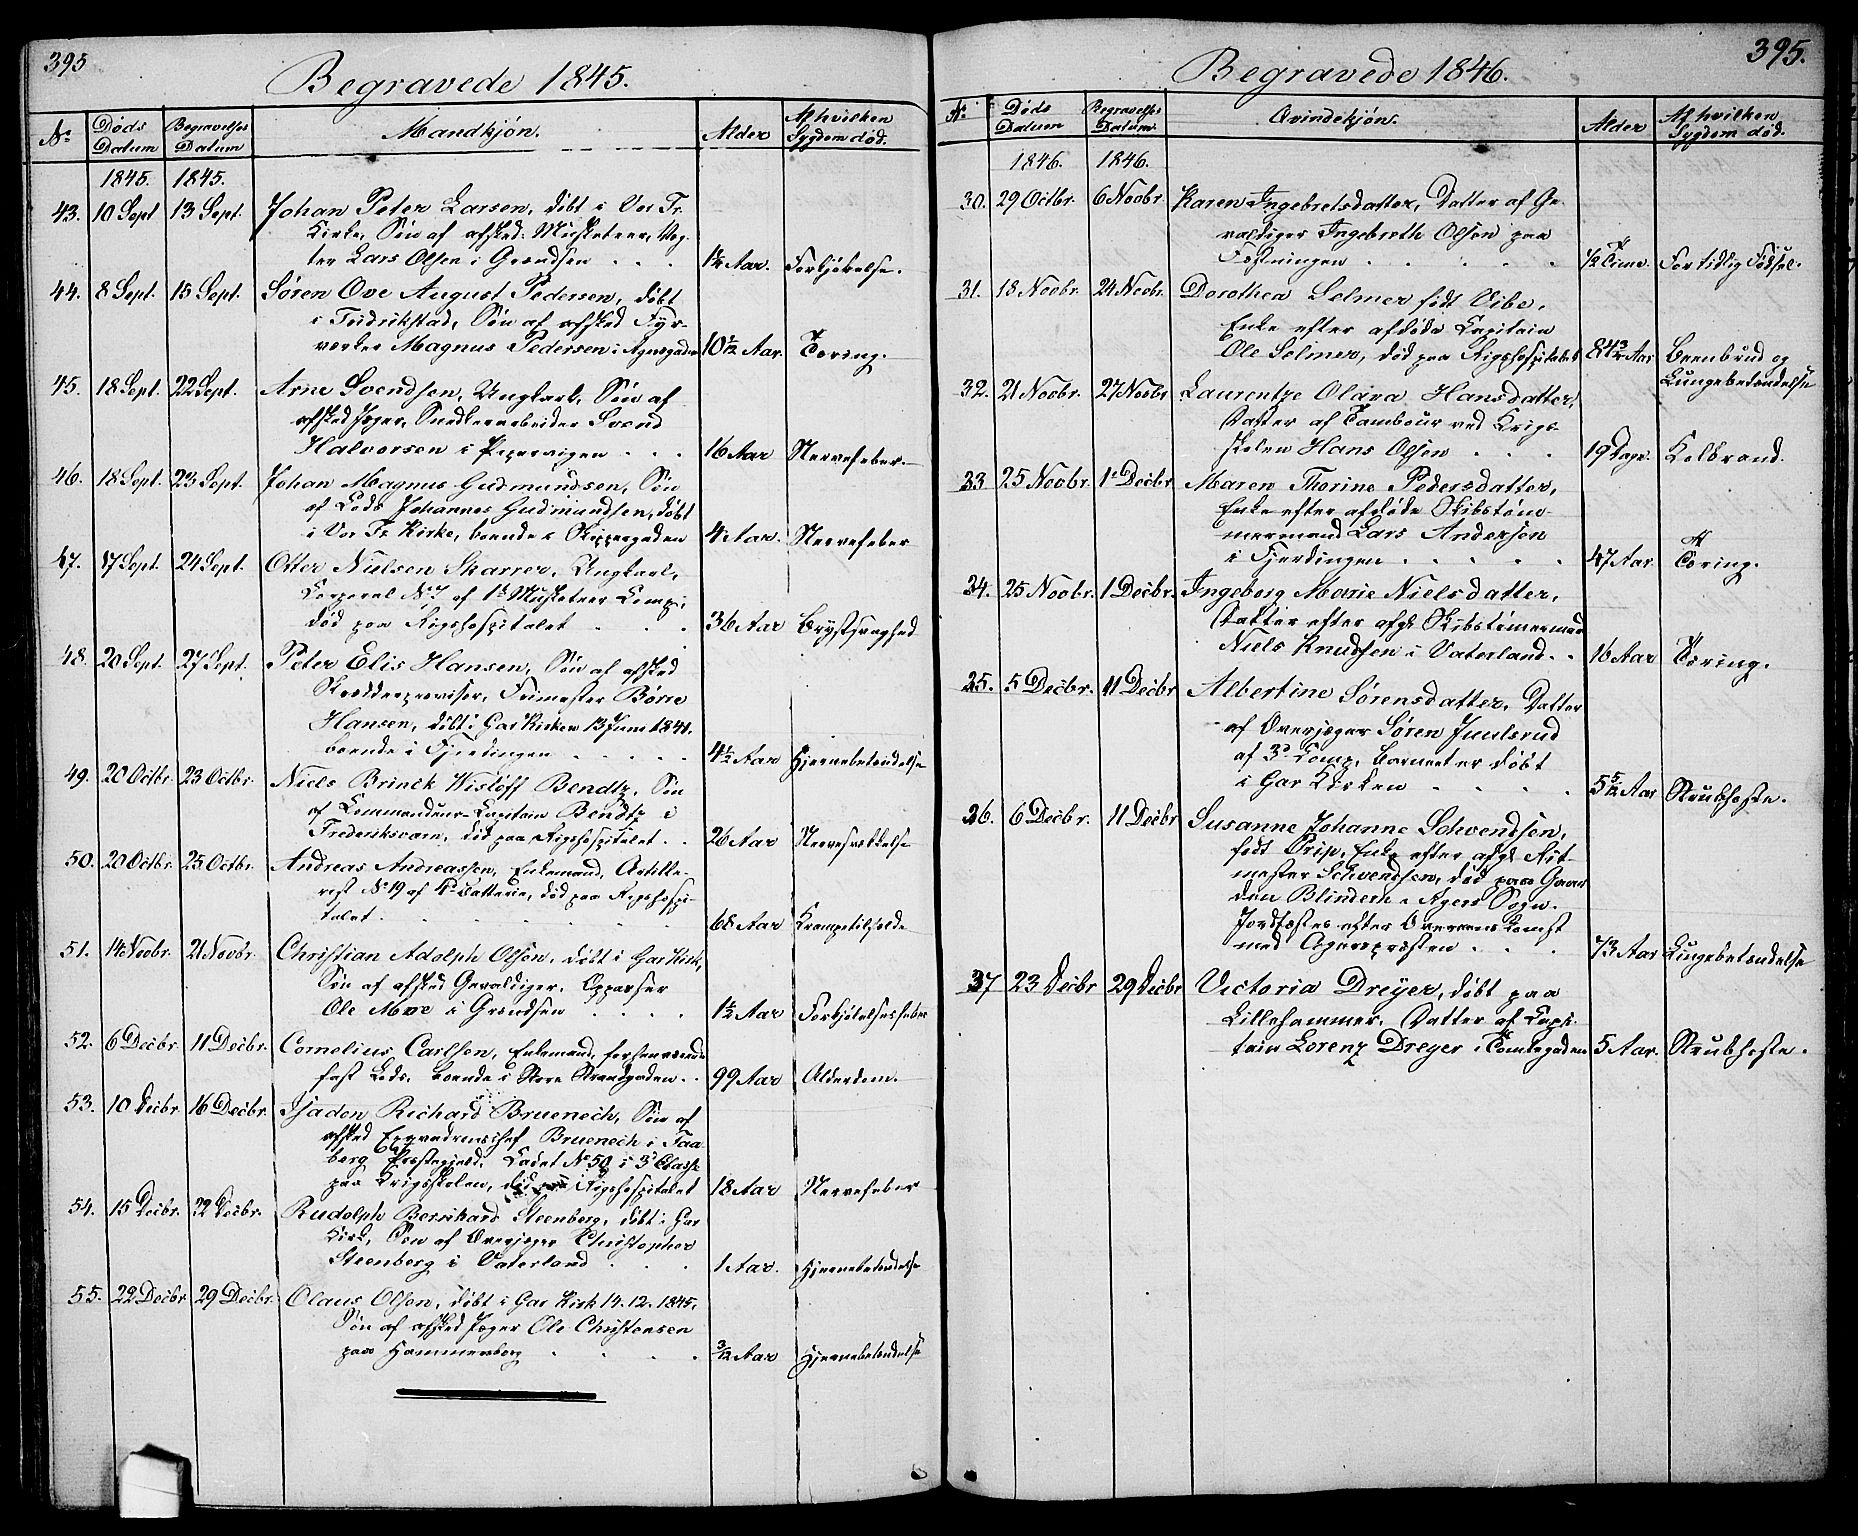 395
Begravede 1845.
No Døds Datum Begravelses Datum Mandkjøn. Alder Af hvilken Sygdom død.
1845. 1845.
43. 10 Sept 13 Sept. Johan Peter Larsen, døbt i Vor Fr.
Kirke, Søn af afsked: Musketeer, Vog-
ter Lars Olsen i Grændsen . . . 1½ Aar. Forkjølelse.
44. 8 Sept. 15 Sept. Søren Ove August Pedersen, døbt
i Fredrikstad, Søn af afsked Fyr-
verker Magnus Pedersen i Agersgaden 10 1/12 Aar. Tæring.
45. 18 Sept. 22 Sept. Arne Svendsen, Ungkarl, Søn af
afsked Jæger, Snedkerarbeider Svend
Halvorsen i Pipervigen . . . 16 Aar Nervefeber.
46. 18 Sept. 23 Sept. Johan Magnus Gudmundsen, Søn
af Lods Johannes Gudmundsen, døbt
i Vor Fr Kirke, boende i Skippergaden 4 Aar. Nervefeber
47. 17 Sept. 24 Sept. Otter Nielsen Skarrer, Ungkarl,
Corporal No 7 af 1ste Musketeer Comp:
død paa Rigshospitalet . . . 36 Aar Brystsvaghed
48. 20 Sept. 27 Sept. Peter Elis Hansen, Søn af afsked
Skrædderprovisor, Frimester Børre
Hansen, døbt i Gar Kirken 13 Juni 1841.
boende i Fjerdingen . . . . . 4½ Aar Hjernebetændelse
49. 20 Octbr. 23 Octbr. Niels Brinck Wisløff Bendtz, Søn
af Commandeur-Capitain Bendtz i
Frederiksværn, død paa Rigshospitalet . . 26 Aar Nervesvækkelse
50. 20 Octbr. 25 Octbr. Andreas Andreassen, Enkemand, Artille-
rist No 19 af 4de Batterie, død paa Rigshospi-
talet. . . . . . 68 Aar Krampetilfælde
51. 14 Novbr. 21 Novbr. Christian Adolph Olsen, døbt i Gar Kirk,
Søn af afsked Gevaldiger, Opparser
Ole Moe i Grændsen . . . . 1½ Aar Forkjølelsesfeber
52. 6 Decbr. 11 Decbr. Cornelius Carlsen, Enkemand, forhenværende
fast Lods, boende i Store Strandgaden. . 99 Aar Alderdom.
53. 10 Decbr. 16 Decbr. Isadon Richard Bruenech, Søn af
afsked Esqvadronschef Bruenech i Faa-
berg Præstegjeld, Cadet No 50 i 3d Classe
paa Krigsskolen, død paa Rigshospitalet 18 Aar Nervefeber
54. 15 Decbr. 22 Decbr. Rudolph Bernhard Steenberg, døbt i Gar
Kirk, Søn af Overjæger Christopher
Steenberg i Vaterland . . . 1 Aar. Hjernebetændelse
55. 22 Decbr 29 Decbr. Olaus Olsen, døbt i Gar Kirk 14.12.1845,
Søn af afsked Jæger Ole Christensen
paa Hammersborg . . . . 3/12 Aar Hjernebetændelse
395.
Begravede 1846.
No Døds Datum Begravelses Datum. Qvindekjøn. Alder Af hvilken Sygdom død.
1846. 1846.
30. 29 Octbr. 6 Novbr. Karen Ingebretsdatter, Datter af Ge-
valdiger Ingebreth Olsen paa
Fæstningen . . . . . ½ Time. For tidlig Fødsel.
31. 18 Novbr. 24 Novbr. Dorothea Selmer født Vibe,
Enke efter afdøde Capitain
Ole Selmer, død paa Rigshospitalet 84 3/4 Aar Beenbrud og
Lungebetændelse
32. 21 Novbr. 27 Novbr Laurentze Olava Hansdatter,
Datter af Tambour ved Krigs-
skolen Hans Olsen . . . 19 Dage. Koldbrand.
33 25 Novbr. 1ste Decbr Maren Thorine Pedersdatter,
Enke efter afdøde Skibstøm-
mermand Lars Andersen
i Fjerdingen . . . . . 47 Aar. Tæring.
34. 25 Novbr. 1 Decbr. Ingeborg Marie Nielsdatter,
Datter efter afgl Skibstømermand
Niels Knudsen i Vaterland. . 16 Aar Tæring.
35. 5 Decbr. 11 Decbr Albertine Sørensdatter, Datter
af Overjæger Søren Juulsrud
af 3d Comp, Barnet er døbt
i Gar Kirken . . . . 5 5/12 Aar Strubhoste.
36. 6 Decbr. 11 Decbr Susanne Johanne Schvendsen,
født Prip, Enke efter afgl Rit-
mester Schvendsen, død paa Gaar-
den Blindern i Agers Sogn.
Jordfæstes efter Overeenskomst
med Agerspræsten . . . 73 Aar Lungebetændelse
37 23 Decbr 29 Decbr Victoria Dreyer, døbt paa
Lillehammer. Datter af Capi-
tain Lorenz Dreyer i Tomtegaden 5 Aar. Strubhoste.